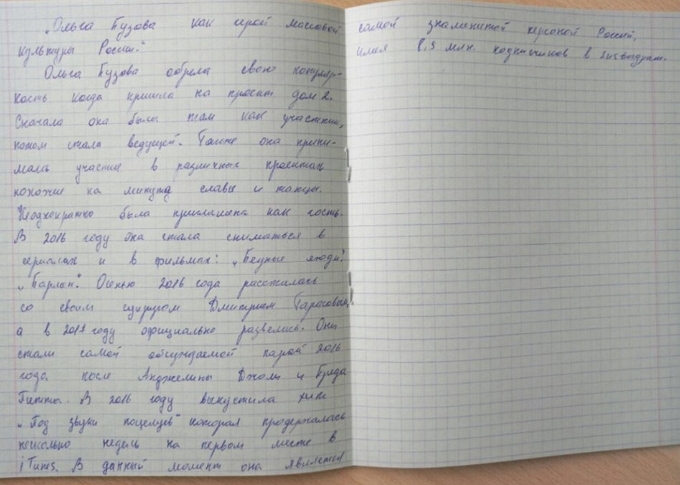 „Ольга Бузова как герой массовой
культуры России."
Ольга Бузова обрела свою популяр-
ность когда пришла на проект дом 2.
Сначала она была там как участник,
потом стала ведущей. Также она прини-
мала участие в различных проектах
похожие на минута славы и танцы.
Неоднократно была приглашена как гость.
В 2016 году она стала сниматься в
сериалах и в фильмах: „Бедные люди",
„Барлин". Осенью 2016 года рассталась
со своим супругом Дмитрием Тарасовым,
а в 2017 году официально развелись. Они
стали самой обсуждаемой парой 2016
года, после Анджелины Джоли и Брэда
Питта. В 2016 году выпустила хит
„Под звуки поцелуев" которая продержалась
несколько недель на первом месте в
iTunes. В данный момент она является
самой знаменитой персоной России,
имея 8,9 млн. подписчиков в